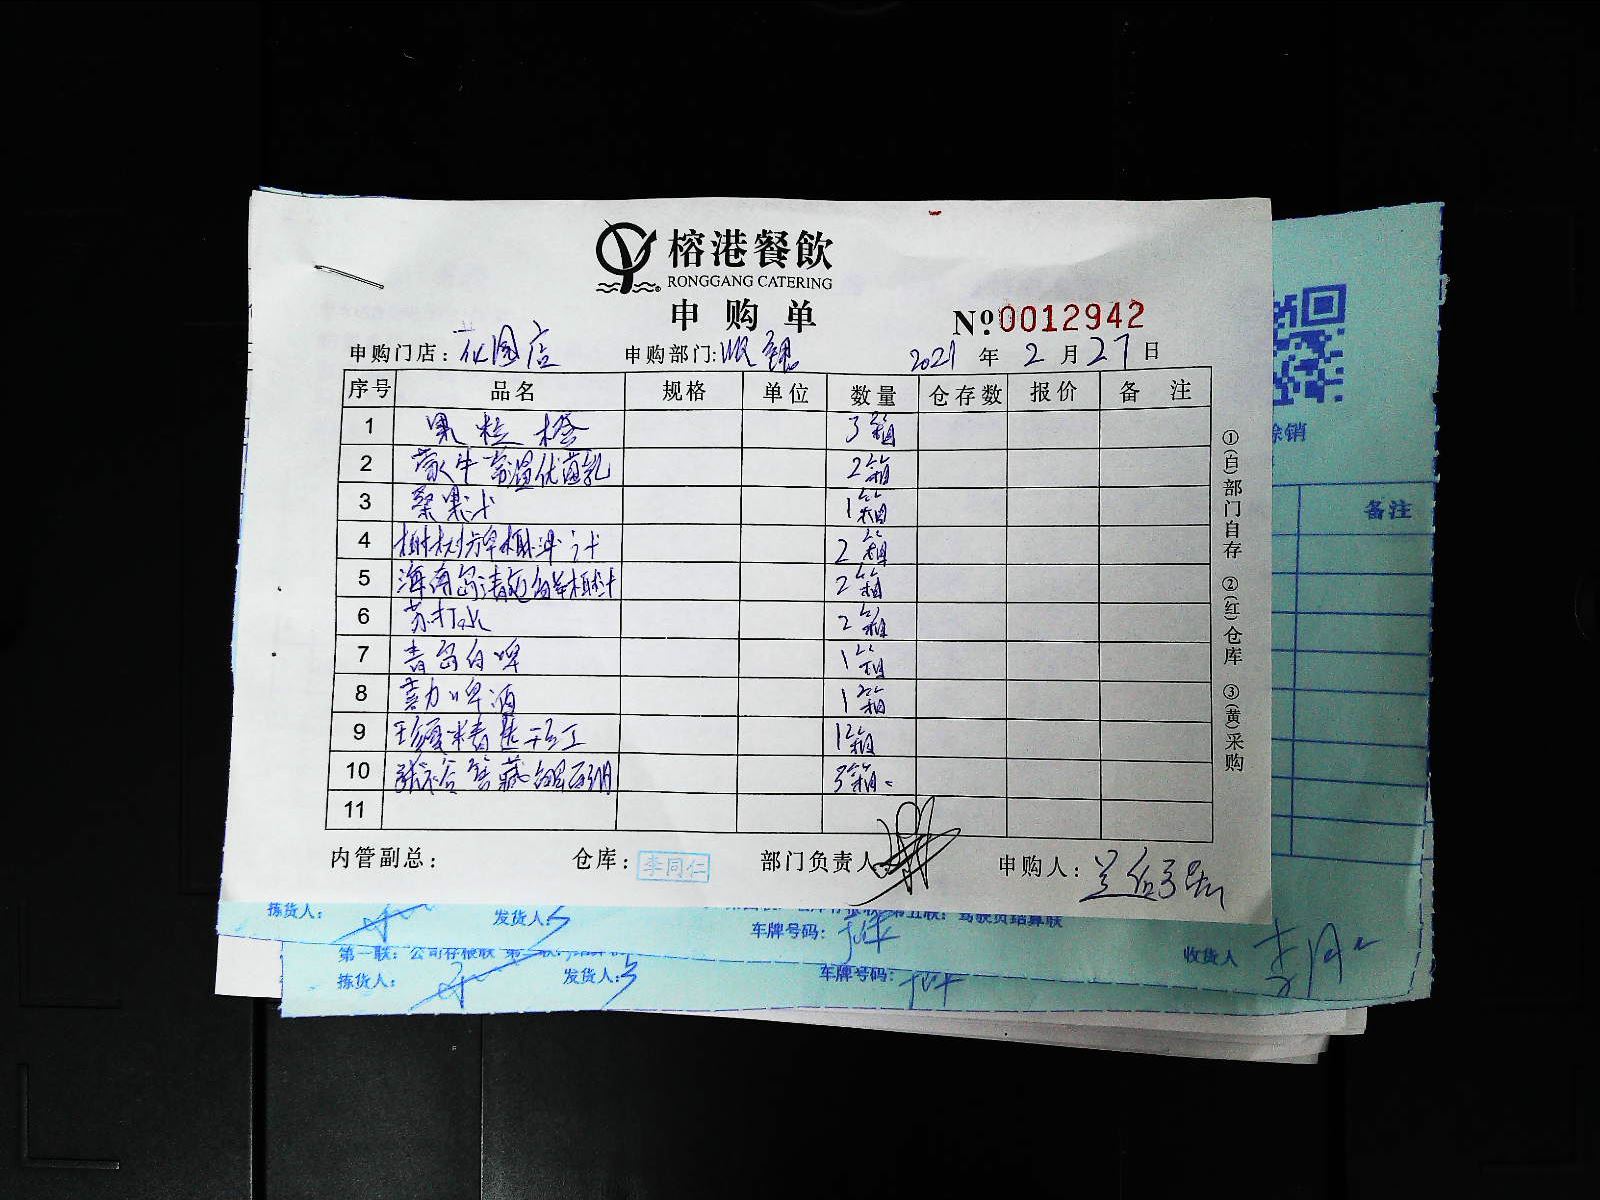 榕港餐飲
RONGGANG CATERING
申购单
№0012942
申购门店：花园店 申购部门：吧 2021年2月27日
序号 品名 规格 单位 数量 仓存数 报价 备注
1 果粒橙 3箱
2 蒙牛常温优菌乳 2箱
3 桑果汁 1箱
4 椰树牌椰汁 2箱
5 海南岛 2箱
6 苏打水 2箱
7 青岛白啤 1箱
8 喜力啤酒 1箱
9 1箱
10 张裕 3箱
11
内管副总： 仓库：李同仁 部门负责人： 申购人：
①(白)部门自存 ②(红)仓库 ③(黄)采购
除销
备注
拣货人： 发货人： 车牌号码： 收货人
第一联：公司存根联
拣货人： 发货人： 车牌号码：